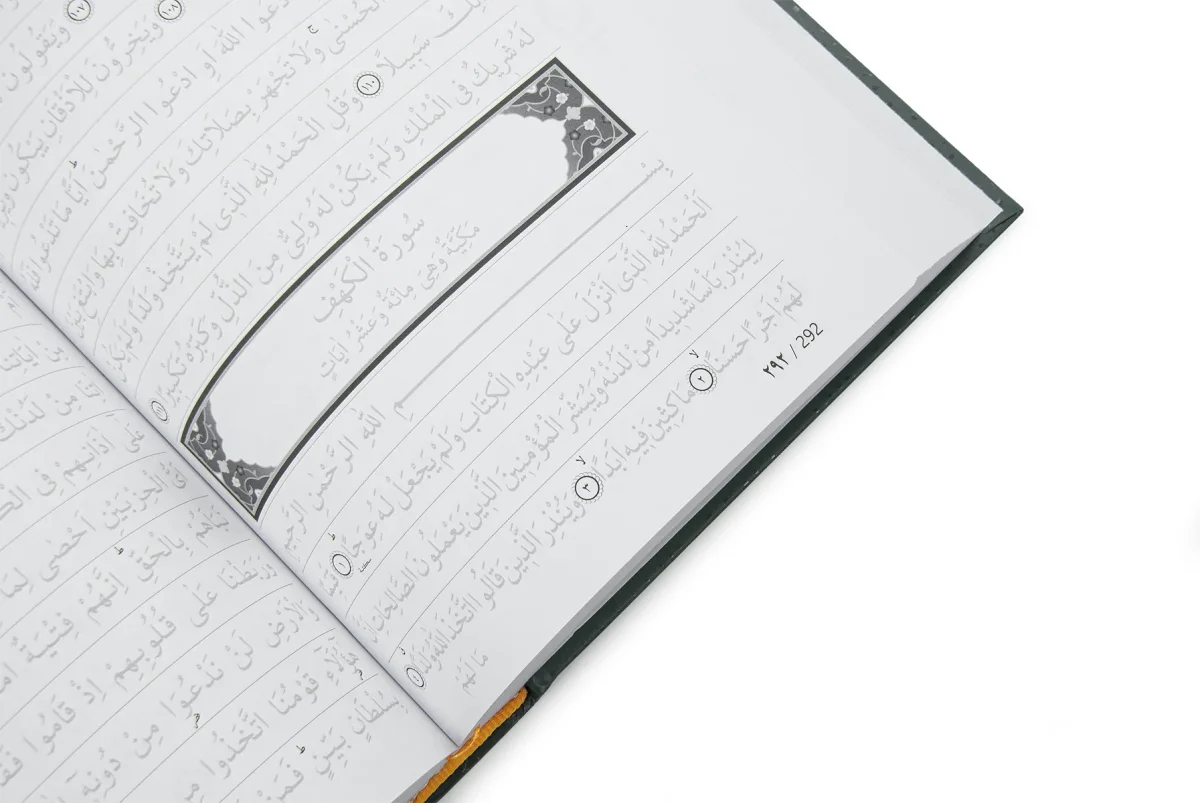 ١٠٧ وَيَقُولُونَ
١٠٨ وَيَخِرُّونَ لِلْاَذْقَانِ يَبْكُونَ
ادْعُوا اللّٰهَ اَوِ ادْعُوا الرَّحْمٰنَۜ اَيًّا مَا تَدْعُوا
الْحُسْنٰىۚ وَلَا تَجْهَرْ بِصَلَاتِكَ وَلَا تُخَافِتْ بِهَا وَابْتَغِ
سَبِيلًا ١١٠ وَقُلِ الْحَمْدُ لِلّٰهِ الَّذِى لَمْ يَتَّخِذْ وَلَدًا وَلَمْ يَكُنْ
لَهُ شَرِيكٌ فِى الْمُلْكِ وَلَمْ يَكُنْ لَهُ وَلِىٌّ مِنَ الذُّلِّ وَكَبِّرْهُ تَكْبِيرًا ١١١
سُورَةُ الْكَهْفِ
مَكِّيَّةٌ وَهِىَ مِائَةٌ وَعَشْرُ اٰيَاتٍ
بِسْمِ اللّٰهِ الرَّحْمٰنِ الرَّحِيمِ
اَلْحَمْدُ لِلّٰهِ الَّذِٓى اَنْزَلَ عَلٰى عَبْدِهِ الْكِتَابَ وَلَمْ يَجْعَلْ لَهُ عِوَجًاۜ ١ قَيِّمًا
لِيُنْذِرَ بَاْسًا شَدِيدًا مِنْ لَدُنْهُ وَيُبَشِّرَ الْمُؤْمِنِينَ الَّذِينَ يَعْمَلُونَ الصَّالِحَاتِ
لَهُمْ اَجْرًا حَسَنًاۙ ٢ مَاكِثِينَ فِيهِ اَبَدًاۙ ٣ وَيُنْذِرَ الَّذِينَ قَالُوا اتَّخَذَ اللّٰهُ وَلَدًا ٤ مَا لَهُمْ
٢٩٢ / 292
مِنْ اٰيَاتِنَا
اٰتِنَا مِنْ لَدُنْكَ
عَلٰٓى اٰذَانِهِمْ فِى
اَىُّ الْحِزْبَيْنِ اَحْصٰى لِمَا
نَبَاَهُمْ بِالْحَقِّۜ اِنَّهُمْ فِتْيَةٌ
وَرَبَطْنَا عَلٰى قُلُوبِهِمْ اِذْ قَامُوا
وَالْاَرْضِ لَنْ نَدْعُوَا مِنْ دُونِهِٓ
هٰٓؤُلَٓاءِ قَوْمُنَا اتَّخَذُوا
بِسُلْطَانٍ بَيِّنٍۜ فَمَنْ